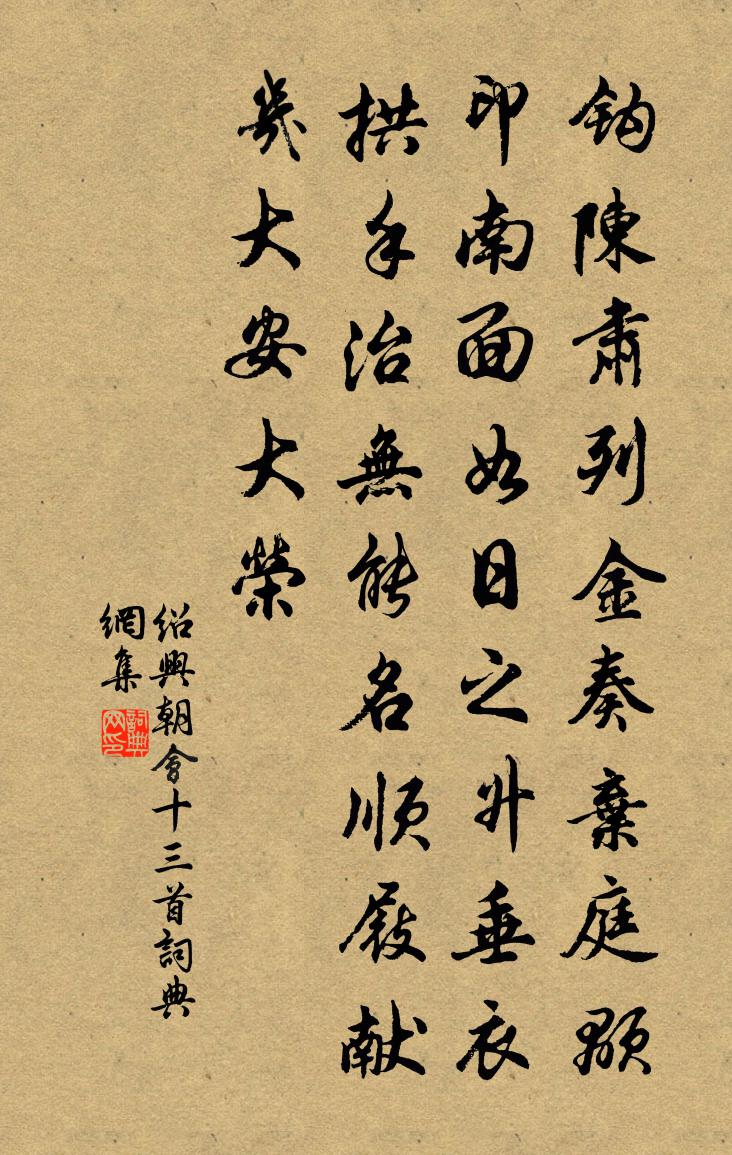 鈎陳肅列金奏棄庭顒
印南面如日之升垂衣
拱手治無能名順履献
歲大安大榮
紹興朝會十三首詞典
網集
詞典网印